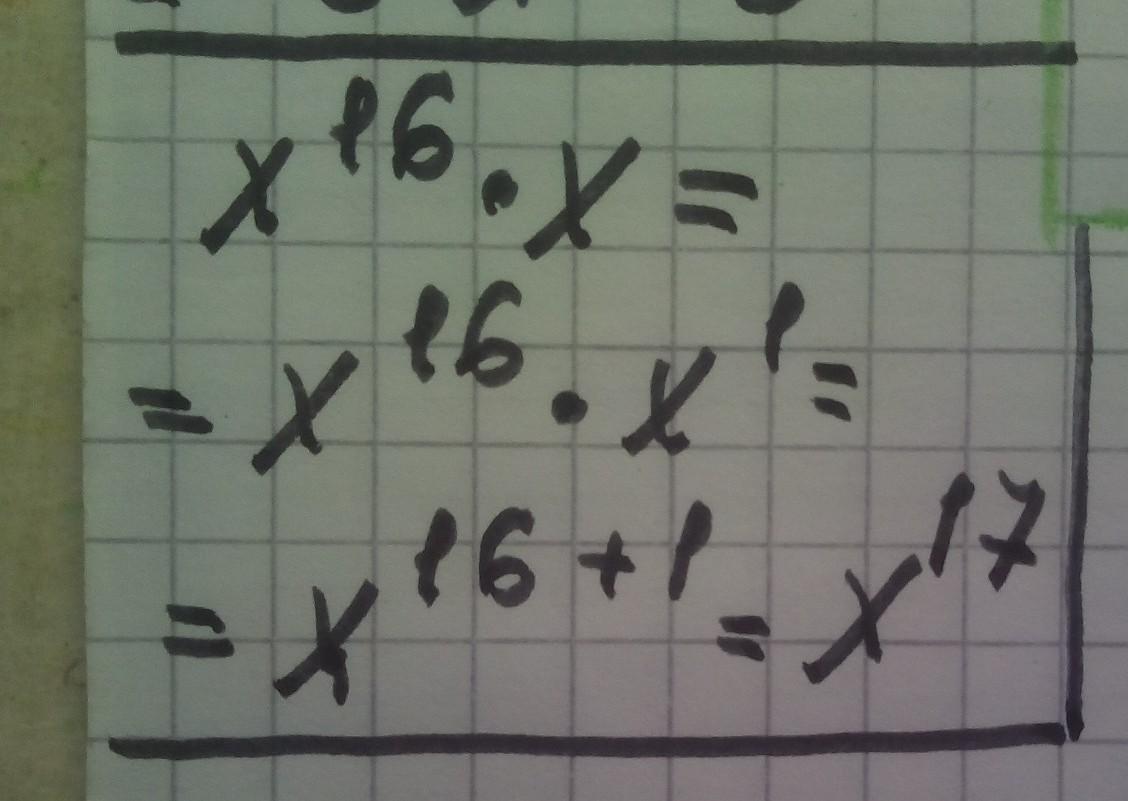 x¹⁶ · x =
= x¹⁶ · x¹ =
= x¹⁶⁺¹ = x¹⁷